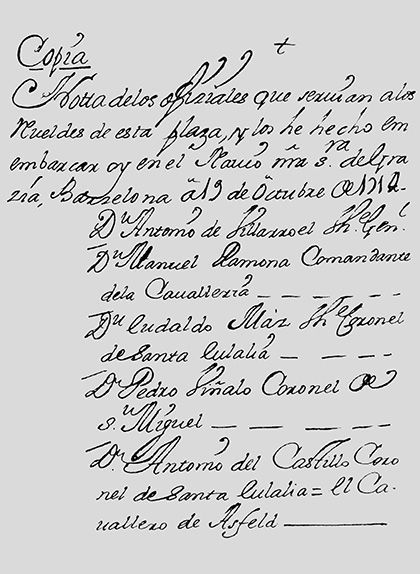 Copia
Notta delos ofiziales que seruian alos
sueldes de esta plaza, y los he hecho em
embarcar oy en el Nauio nr̃a s.ra de Gra
zia, Barzelona à 19 de Octubre de 1714.
Dn Antonio de Villarroel Ihe Genl.
Dn Manuel Ramona Comandante
dela Caualleria — — — —
Dn Eudaldo Máz Ihe Coronel
de Santa Eulalia — — —
Dn Pedro Viñalo Coronel de
sn Miguel — — — —
Dn Antonio del Castillo Coro
nel de Santa Eulalia = El Ca-
uallero de Asfeld ———